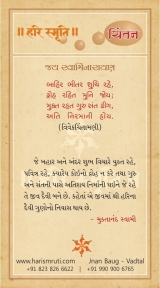 ॥ हरि स्मृति ॥
ચિંતન
જય સ્વામિનારાયણ
બાહિર ભીતર શુચિ રહે,
દ્રોહ રહિત મુનિ જોય;
મુક્ત રહત ગુરુ સંત ઢીગ,
અતિ નિરમાની હોય.
(વિવેકચિંતામણી)
જે બહાર અને અંદર શુભ વિચારે યુક્ત રહે,
પવિત્ર રહે, ક્યારેય કોઈનો દ્રોહ ન કરે તથા ગુરુ
અને સંતની પાસે અતિશય નિર્માની થઈને જે રહે
તે જીવ દૈવી બને છે. કહેતાં એ જીવમાં શ્રી હરિના
દૈવી ગુણોનો નિવાસ થાય છે.
- મુક્તાનંદ સ્વામી
www.harismruti.com
Jnan Baug - Vadtal
+91 823 826 6622
+91 990 900 6765